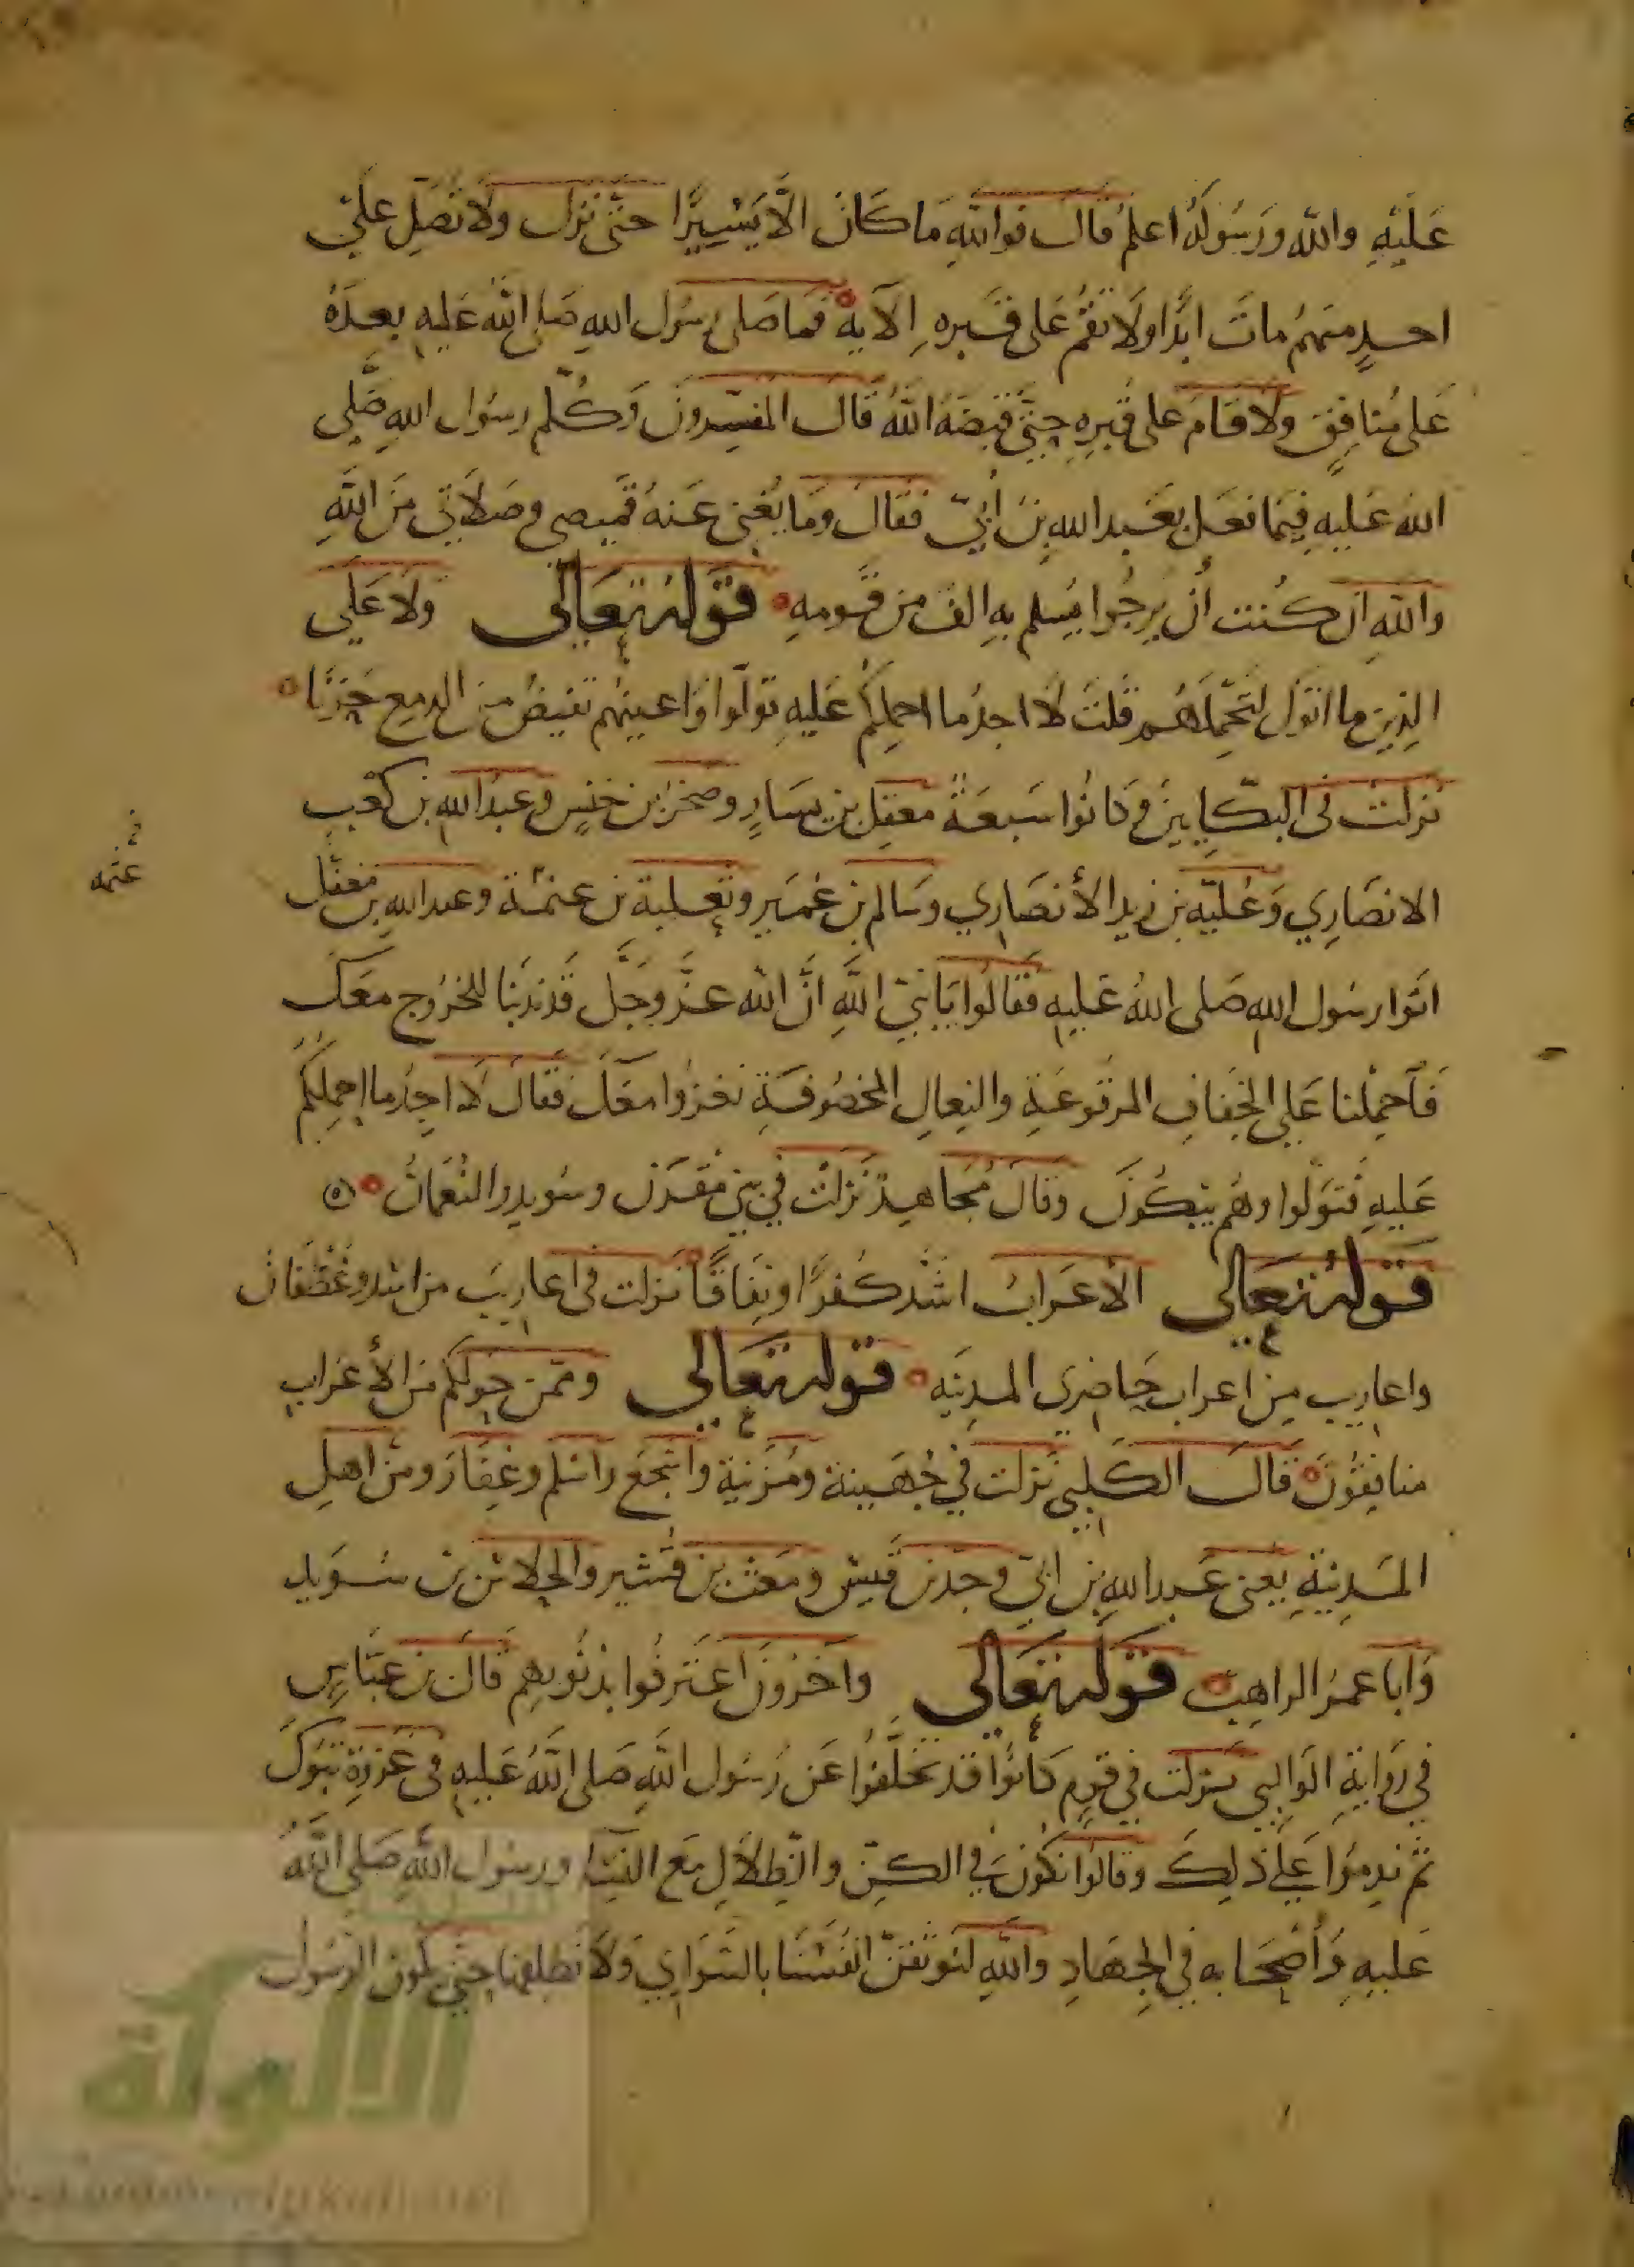 عَلَيْهِ والله وَرَسُولُهُ اعلمُ قال فوالله مَا كَانَ الّا يَسِيرًا حتى نزل ولا تُصَلِّ عَلَى
احدٍ منهُم ماتَ ابدًا ولا تقُم عَلى قبره الآية فما صَلى رسُول اللهِ صَلى اللهُ عَليهِ بعدَهُ
عَلى مُنافِقٍ ولا قامَ على قبرِهِ حتى قبضَهُ اللهُ قال المفسّرونَ وَكُلّم رسُول اللهِ صَلى
اللهُ عَليهِ فيمَا فعَل بعَبد اللهِ بن أُبَيّ فقالَ ومَا يُغنى عَنهُ قميصى وصَلاتى مِنَ اللَّهِ
واللهِ ان كُنت أن يرجُوا يُسلم بهِ الف من قومهِ قوله تعَالى ولا عَلى
الذِين ما اتوك لتحملهُم قلتَ لا اجدُ ما احملكُم عَليهِ تولّوا وَاعينهُم تفيضُ من الدمع حَزنًا
نزلت فى البكّايينَ وَكانُوا سَبعَةً معقِل بن يسَارٍ وصَخرُ بن خنيسٍ وعبدُ الله بن كعبٍ
الانصَارِي وَعُليّة بن زيد الأنصَارِي وسَالم بن عُمَير وثعلبة بن عنمة وعبد الله بن مغفل
اتوا رسُول اللهِ صَلى اللهُ عَليهِ فقالُوا يَا نبيّ اللهِ انَّ الله عزَّ وجَلَّ قدندبَنا للخرُوج معَكَ
فَاحمِلنا عَلى الخِفافِ المرقوعَةِ والنِعالِ المخصُوفَةِ نغزُوا معَكَ فقالَ لا اجِدُ ما احملكُم
عَليهِ فتوَلّوا وهُم يبكُونَ وقالَ مُجَاهِدٌ نزلتْ في بني مُقَرن وسُويدٍ والنُعمَانُ
قوله تعَالى الأعرَابُ اشدّ كُفرًا ونِفاقًا نزلت فى اعاريبَ من اسد وغَطَفان
واعاريب مِن اعراب حَاضِرى المدينَه قوله تعَالى وممّن حَولكُم من الأعراب
منافِقُونَ قالَ الكَلبى نزلت في جُهَينة ومُزَينة واشجَعَ واسلم وغِفَارَ ومن اهلِ
المَدِينَةِ يَعنى عَبد اللهِ بن ابيّ وجَدّ بن قيس ومعَتب بن قُشير والجلاس بن سُوَيد
وَابا عمرُ الراهِب قوله تعَالى وآخَرُونَ اعتَرفُوا بذنُوبِهِم قالَ بن عبّاسٍ
في رَوايةِ الوَالبى نزلت في قومٍ كانُوا قد تخلّفُوا عَن رسُول اللهِ صَلى اللهُ عَليهِ فى غَزوَةِ تبُوكَ
ثم ندِمُوا عَلى ذلِكَ وقالوا نكُونُ في الكِنّ والظِلالِ مَع النِسَا ورسُول اللهِ صَلى اللهُ
عَليهِ وَأصحَابه في الجِهَادِ واللهِ لنُوثقنّ انفُسَنَا بالسَوَارِي ولا نُطلقها حتى يكُون الرسُول
عنمه
الألوكة